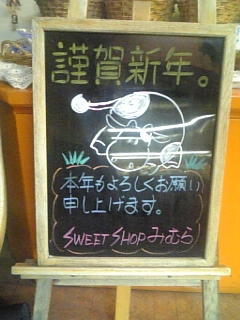 謹賀新年。
本年もよろしくお願い
申し上げます。
SWEET SHOP みむら